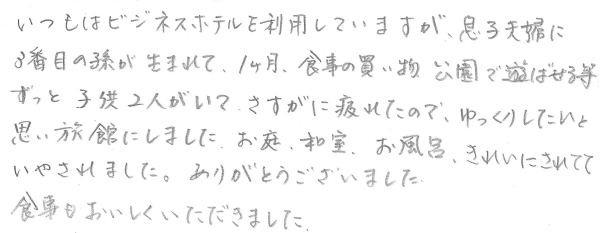 いつもはビジネスホテルを利用していますが、息子夫婦に
3番目の孫が生まれて、1ヶ月、食事の買い物 公園で遊ばせる等
ずっと子供2人がいて さすがに疲れたので、ゆっくりしたいと
思い旅館にしました お庭、和室、お風呂、きれいにされてて
いやされました。ありがとうございました
食事もおいしくいただきました